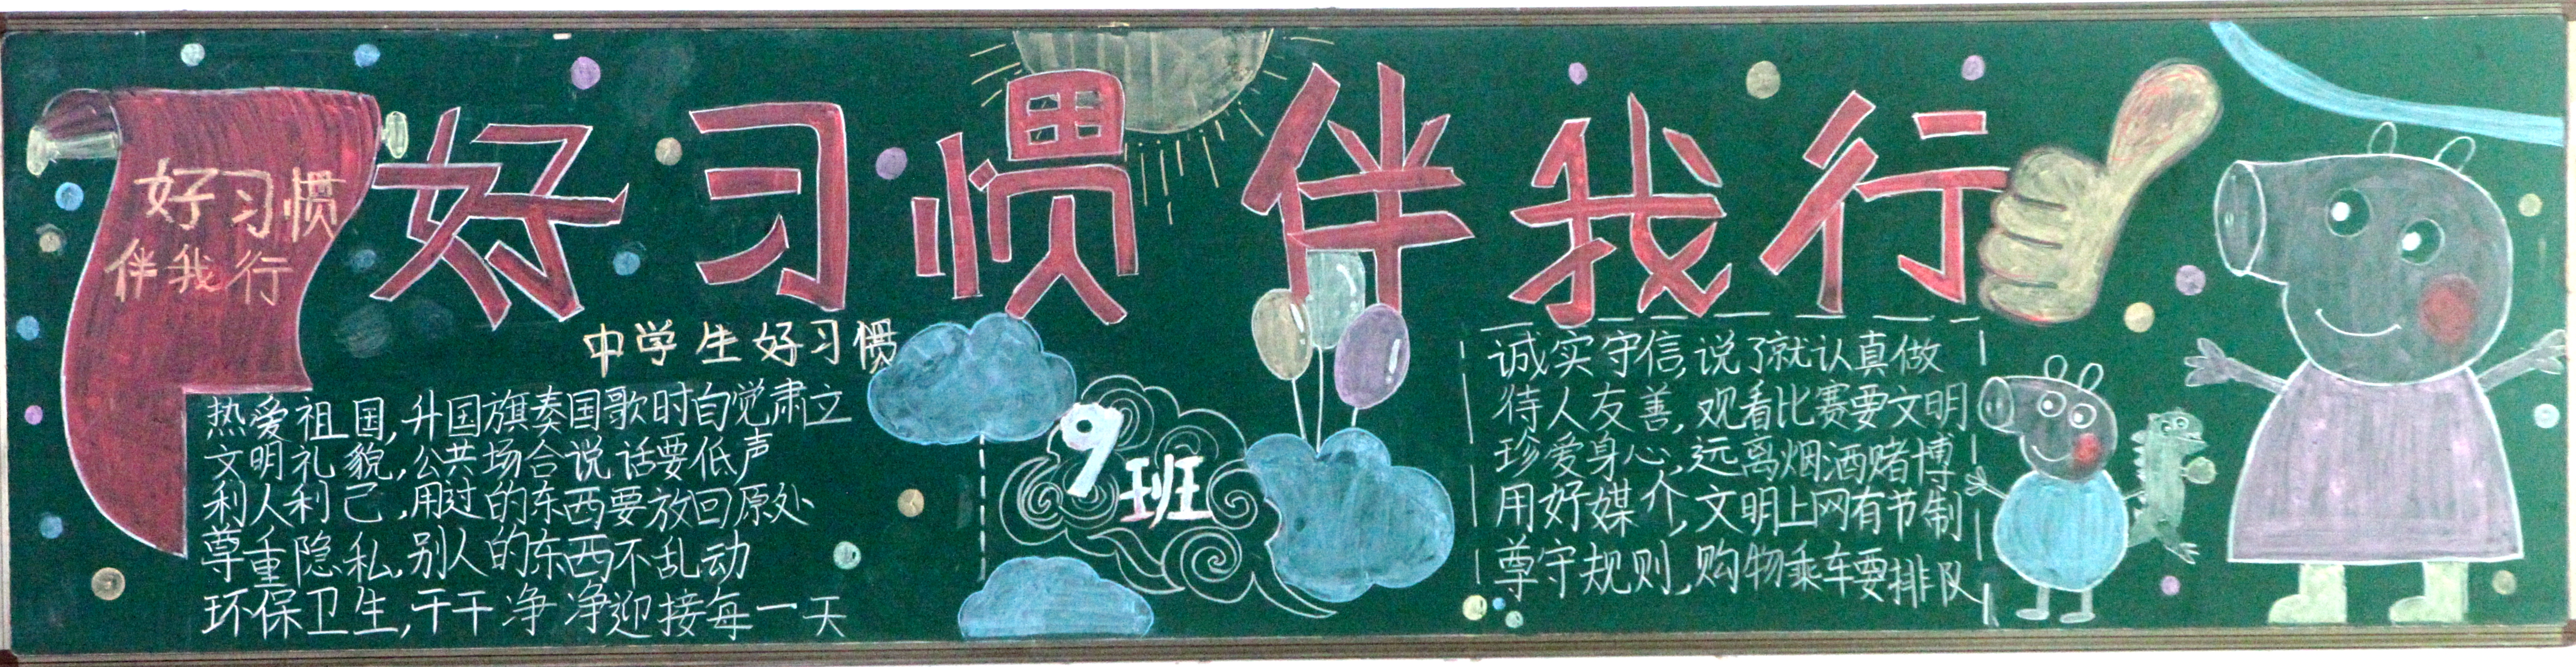 好习惯伴我行
好习惯
伴我行
中学生好习惯
热爱祖国,升国旗奏国歌时自觉肃立
文明礼貌,公共场合说话要低声
利人利己,用过的东西要放回原处
尊重隐私,别人的东西不乱动
环保卫生,干干净净迎接每一天
9班
诚实守信,说了就认真做
待人友善,观看比赛要文明
珍爱身心,远离烟酒赌博
用好媒介,文明上网有节制
尊守规则,购物乘车要排队